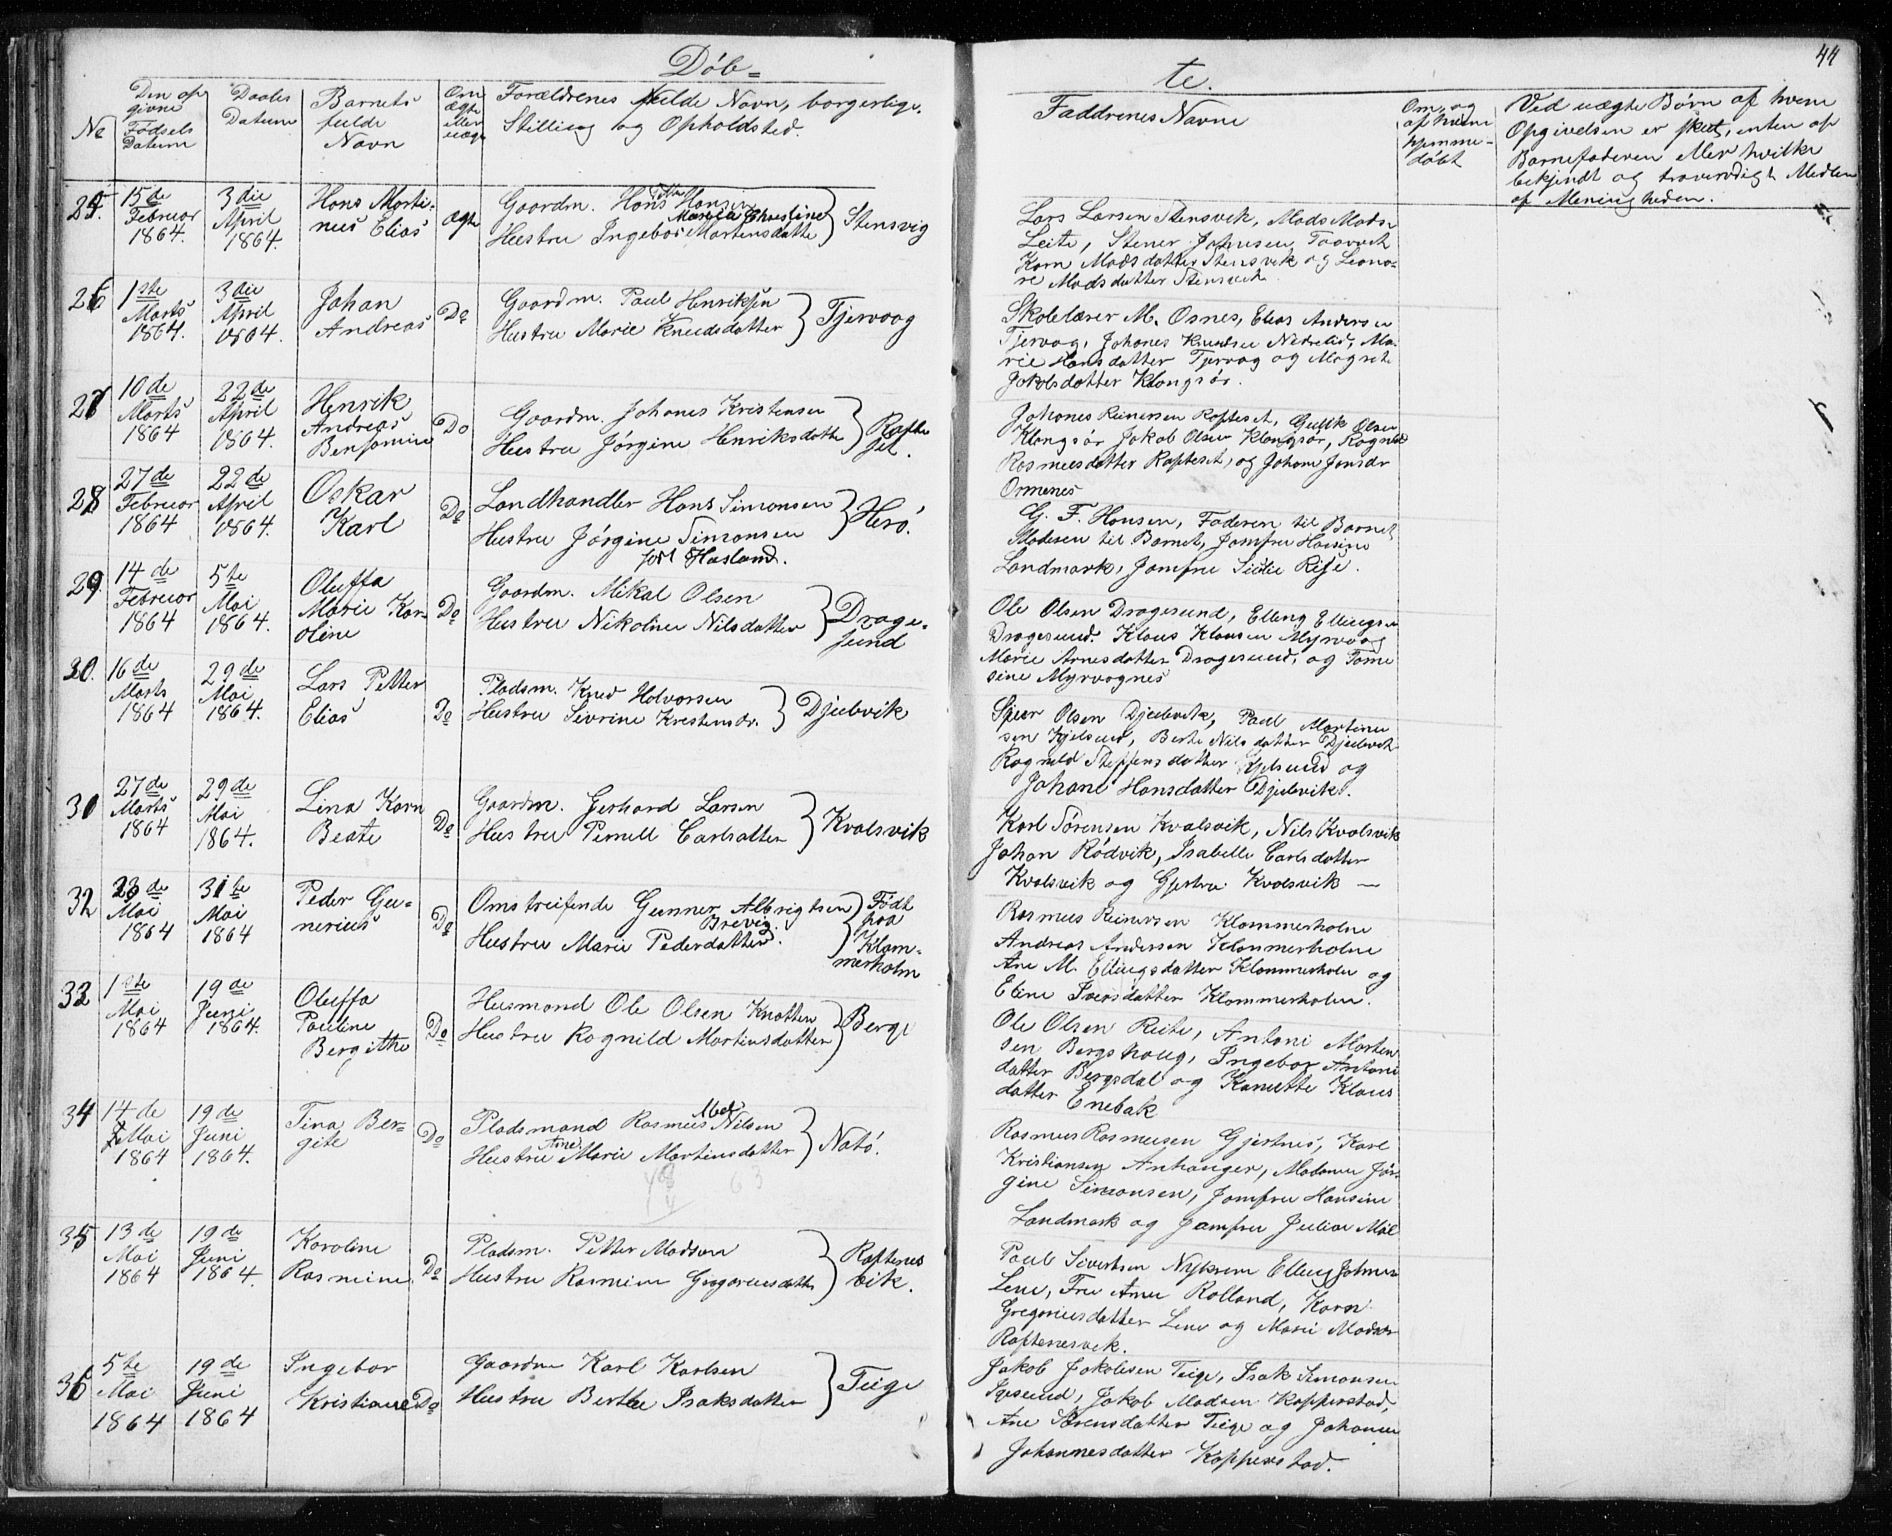 Døb=
te.
44
No
Den op
givne
Fødsels
Datum
Daabs
Datum
Barnets
fulde
Navn
Om
ægte
eller
uægte
Forældrenes fulde Navn, borgerlige
Stilling og Opholdsted.
Faddrenes Navne
Om og
af hvem
hjemme-
døbt
Ved uægte Børn af hvem
Opgivelsen er skeet, enten af
Barnefaderen eller hvilke
bekjendt og troværdigt Medlem
af Menigheden.
25.
15de
Februar
1864.
3die
April
1864.
Hans Marti-
nus Elias
ægte
Gaardm. Hans Hansen
Maria Christine
Hustru Ingebor Martensdatte
Stensvig
Lars Larsen Stensvik, Mads Mads
Leite, Stener Johnsen
Karn Madsdatter Stensvik og Leono-
re Madsdatter Stensvik
26
1ste
Marts
1864.
3die
April
1864.
Johan
Andreas
Do
Gaardm. Paul Henriksen
Hustru Marie Knudsdatter
Tjervaag
Skolelærer M. Osnes, Elias Andersen
Tjervag, Johanes Knudsen Nedrelid, Ma-
rie Hansdatter Tjervag og Magrete
Jakobsdatter Klongsør.
27
10de
Marts
1864
22de
April
1864.
Henrik
Andreas
Benjamin
Do
Gaardm. Johanes Kristensen
Hustru Jørgine Henriksdatte
Rafte
set.
Johanes Reinersen Rafteset, Gullik Olsen
Klongsør Jakob Olsen Klongsør, Ragnild
Rasmusdatter Rafteset, og Johan Jonsdr
Ormenes
28
27de
Februar
1864
22de
April
1864.
Oskar
Karl
Do
Landhandler Hans Simonsen
Hustru Jørgine Simonsen
født Hasland.
Herø.
G. F. Hansen, Faderen til Barnet
Moderen til Barnet, Jomfru Hansine
Landmark, Jomfru Rise.
29.
14de
Februar
1864
5te
Mai
1864.
Oluffa
Marie Kar-
oline
Do
Gaardm. Mikal Olsen
Hustru Nikoline Nilsdatter
Drage-
sund
Ole Olsen Dragesund, Elling Ellingsen
Dragesund. Klaus Klausen Myrvaag
Marie Arnesdatter Dragesund, og Tome
sine Myrvagnes
30.
16de
Marts
1864
29de
Mai
1864.
Lars Petter
Elias
Do
Pladsm. Knud Halvorsen
Hustru Sevrine Kristensdr.
Djubvik
Olsen Djubvik, Paul Martinu
sen Kjelsund, Berte Nilsdatter Djubvik
Ragnild Steffensdatter Kjelsund og
Johane Hansdatter Djubvik.
31
27de
Marts
1864
29de
Mai
1864.
Lina Karn
Beate
Do
Gaardm. Gerhard Larsen
Hustru Pernill Carlsatter
Kvalsvik
Karl Sørensen Kvalsvik, Nils Kvalsvik
Johan Rødvik, Isabelle Carlsdatter
Kvalsvik og Gjertru Kvalsvik —
32
23de
Mai
1864
31te
Mai
1864
Peder Gu-
nerius
Do
Omstreifende Gunner Albrigtsen
Brevig.
Hustru Marie Pedersdatter
Født
paa
Klom-
merholm
Rasmus Reinersen Klommerholm
Andreas Andersen Klommerholm
Ane M. Ellingsdatter Klommerholm og
Eline Iversdatter Klommerholm.
33
1ste
Mai
1864
19de
Juni
1864.
Oluffa
Pauline
Bergithe
Do
Husmand Ole Olsen Knotten
Hustru Ragnild Martinsdatter
Berge
Ole Olsen Reite, Antoni Morten
sen Bergshaug, Ingebor Antoni
datter Bergsdal og Kanutte Klaus
datter Enebak
34
14de
Mai
1864
19de
Juni
1864.
Tina Ber-
gite
Do
Pladsmand Rasmus Nilsen
Ane
Hustru Marie Martinsdatter
Natø.
Rasmus Rasmusen Gjertnes, Karl
Kristiansen Anhanger, Madame Jør-
gine Simonsen, Jomfru Hansine
Landmark og Jomfru Julia Møl
35
13de
Mai
1864
19de
Juni
1864.
Karoline
Rasmine.
Do
Pladsm. Petter Madsen
Hustru Rasmine Gregoriusdatte
Raftenes
vik.
Paul Sivertsen Nyksem Elling Johnsen
Lene, Fru Ane Rolland, Karn
Gregoriusdatter Lene og Marie Madsdr
Raftenesvik.
36
5te
Mai
1864
19de
Juni
1864
Ingebor
Kristiane
Do
Gaardm Karl Karlsen
Hustru Berthe Isaksdatter
Teige
Jakob Jakobsen Teige, Isak Simonsen
Igesund, Jakob Madsen Kopperstad,
Ane Sørensdatter Teige og Johanne
Johannesdatter Kopperstad.